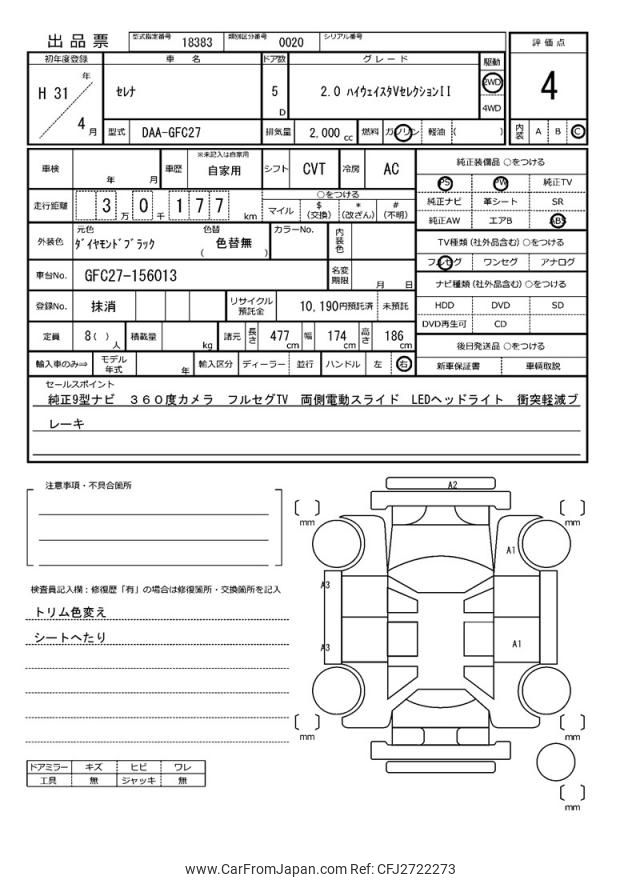 出品票 型式指定番号 18383 類別区分番号 0020 シリアル番号
初年度登録 車名 ドア数 グレード 駆動 評価点
H 31 年 セレナ 5 D 2.0 ハイウェイスタVセレクションII 2WD 4
4WD
4 月 型式 DAA-GFC27 排気量 2,000 cc 燃料 ガソリン 軽油 ( ) 内装 A B C
車検 年 月 車歴 ※未記入は自家用 自家用 シフト CVT 冷房 AC 純正装備品 ○をつける
PS PW 純正TV
走行距離 3 万 0 千 1 7 7 km ○をつける
マイル $(交換) *(改ざん) #(不明)
純正ナビ 革シート SR
純正AW エアB ABS
外装色 元色 ダイヤモンドブラック 色替 ( 色替無 ) カラーNo. 内装色
TV種類(社外品含む)○をつける
フルセグ ワンセグ アナログ
車台No. GFC27-156013 名変期限 月 日
ナビ種類(社外品含む)○をつける
登録No. 抹消 リサイクル預託金 10,190円預託済 未預託
HDD DVD SD
DVD再生可 CD
定員 8( )人 積載量 kg 諸元 長さ 477 cm 幅 174 cm 高さ 186 cm
後日発送品 ○をつける
輸入車のみ⇒ モデル年式 年 輸入区分 ディーラー 並行 ハンドル 左 右
新車保証書 車輌取説
セールスポイント
純正9型ナビ 360度カメラ フルセグTV 両側電動スライド LEDヘッドライト 衝突軽減ブ
レーキ
注意事項・不具合箇所
A2
mm
mm
A1
検査員記入欄:修復歴「有」の場合は修復箇所・交換箇所を記入
A3
トリム色変え
シートへたり
A3
A1
mm
mm
ドアミラー キズ ヒビ ワレ
工具 無 ジャッキ 無
mm
www.CarFromJapan.com Ref: CFJ2722273